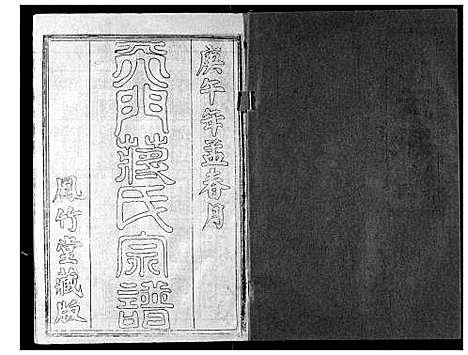 庚午年孟春月
天門蔣氏宗譜
鳳竹堂藏版